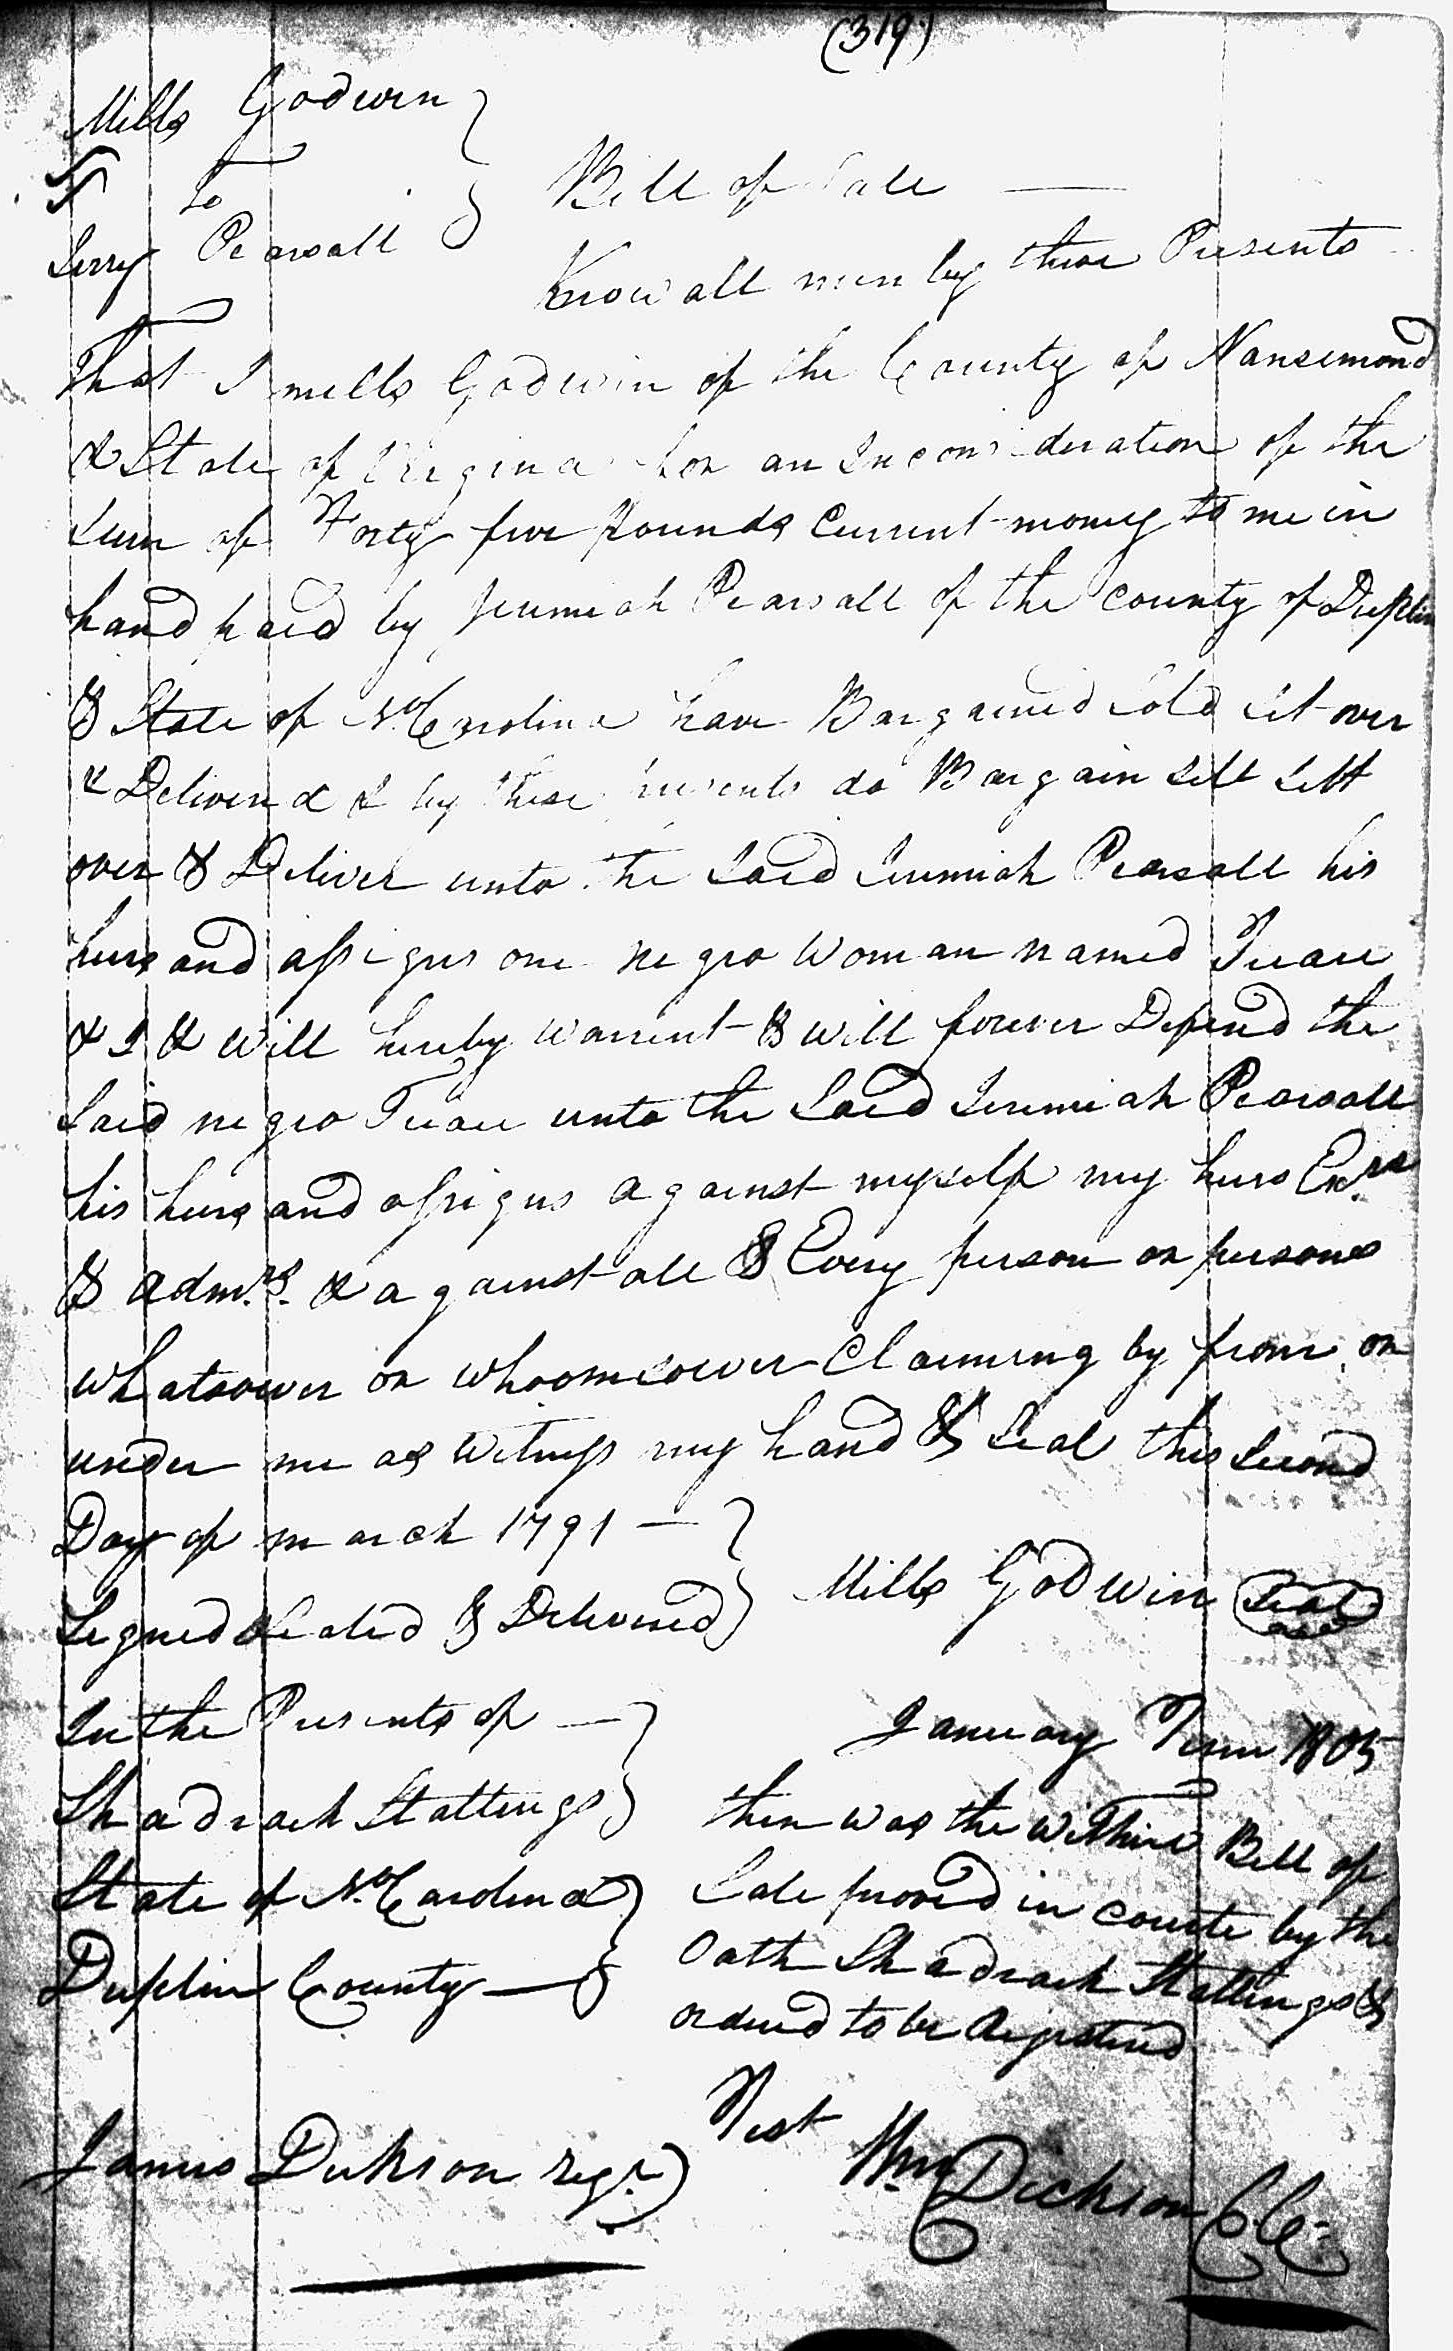 (319)
Mills Godwin
To
Jerry Pearsall
Bill of Sale
Know all men by these Presents
That I mills Godwin of the County of Nansemond
& State of Virgina for an Inconsideration of the
Sum of Forty five pounds Current money to me in
hand paid by Jeremiah Pearsall of the County of Duplin
& State of No Carolina have Bargained Sold Set over
& Deliverd & by these presents do Bargain Sell Sett
over & Deliver unto the Said Jeremiah Pearsall his
heirs and assigns one negro Woman named
& I & Will hereby Warrent & will forever Defend the
Said negro unto the Said Jeremiah Pearsall
his heirs and assigns against myself my heirs Exrs
& Admrs. & against all & Every person or persons
whatsoever or whoomsoever Claiming by from or
under me as Witness my hand & Seal this Second
Day of march 1791
Signed Sealed & Delivered
Mills Godwin Seal
In the Presents of
Shadrach Stallings
State of No Carolina
Duplin County
January Term 1805
then was the within Bill of
Sale proved in courte by the
Oath Shadrach Stallings &
ordered to be Registered
Test
Wm Dickson C.C.
James Dickson regr